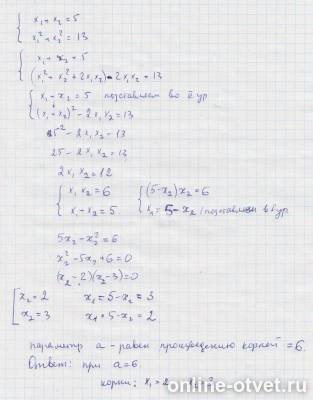 { x₁ + x₂ = 5
x₁² + x₂² = 13
{ x₁ + x₂ = 5
(x₁² + x₂² + 2x₁x₂) - 2x₁x₂ = 13
{ x₁ + x₂ = 5 подставляем во 2 ур
(x₁ + x₂)² - 2x₁x₂ = 13
5² - 2x₁x₂ = 13
25 - 2x₁x₂ = 13
2x₁x₂ = 12
{ x₁x₂ = 6 { (5-x₂)x₂ = 6
x₁ + x₂ = 5 x₁ = 5 - x₂ /подставляем в ур
5x₂ - x₂² = 6
x₂² - 5x₂ + 6 = 0
(x₂ - 2)(x₂ - 3) = 0
[ x₂ = 2 x₁ = 5 - x₂ = 3
x₂ = 3 x₁ = 5 - x₂ = 2
параметр а - равен произведению корней = 6.
Ответ: при а = 6.
корни: x₁ = 2
online-otvet.ru